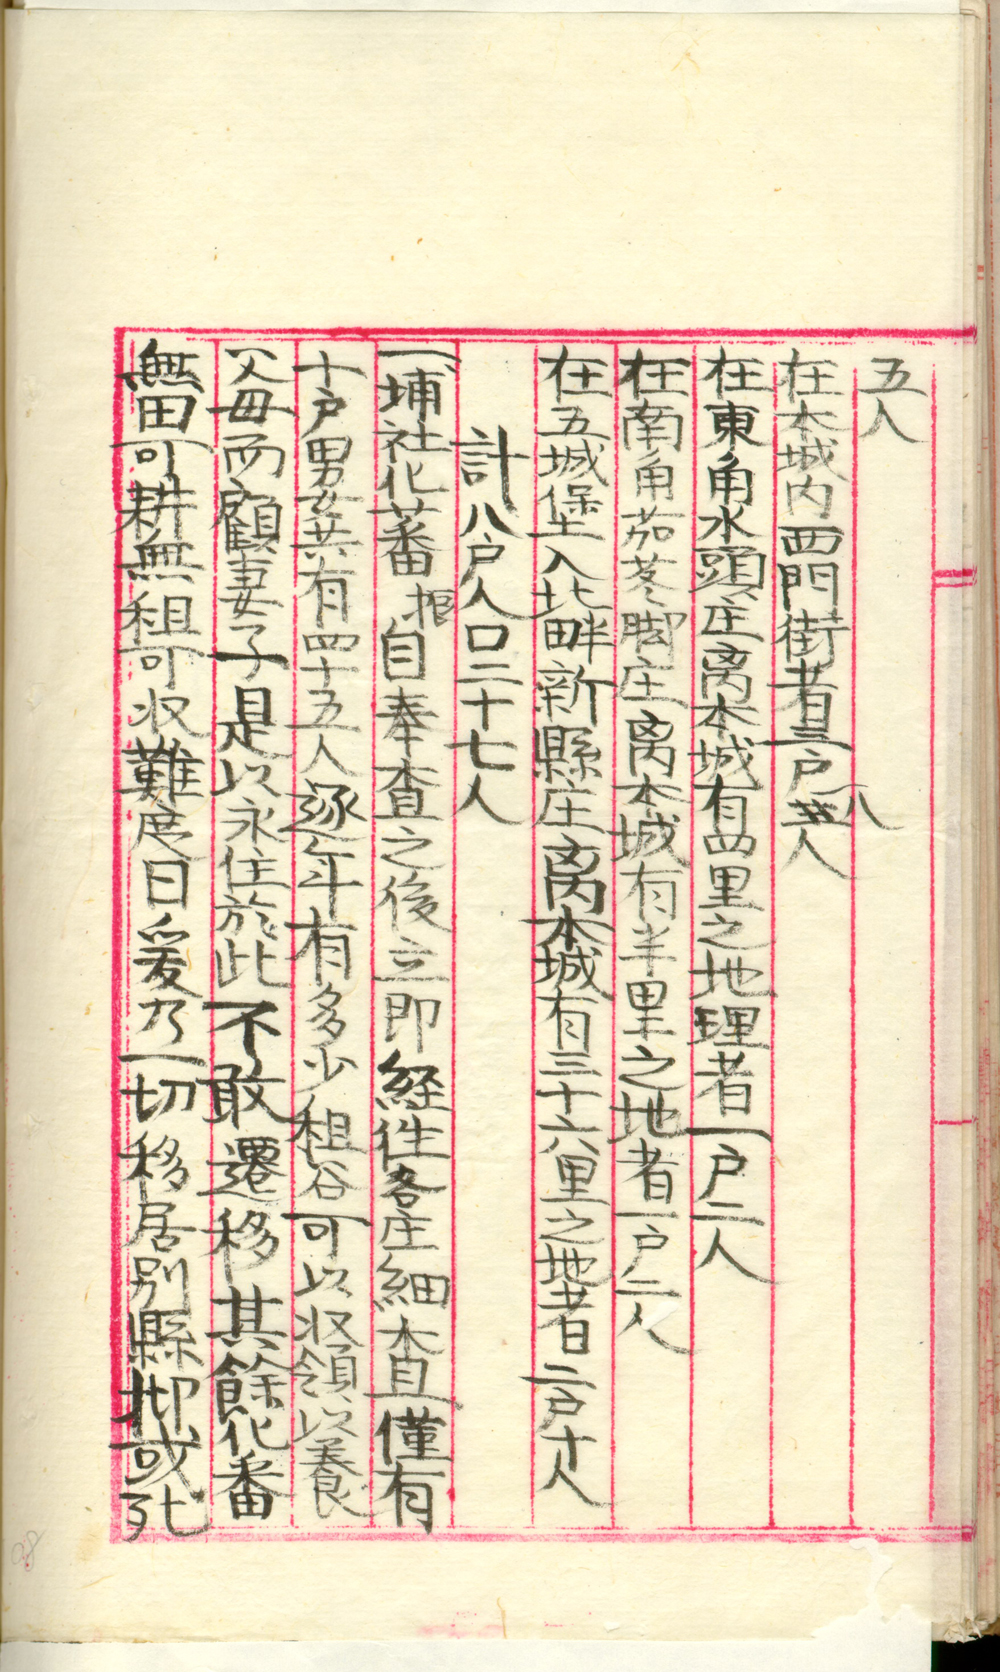 五人
在本城内四門街者三户八人
在東角水頭庄离本城有四里之地理者一户二人
在南角茄苳脚庄离本城有半里之地者一户二人
在五城堡入北畔新縣庄离本城有三十六里之地者二户十人
計八户人口二十七人
一埔社化蕃抿自奉查之後立即経徃各庄細查僅有
十户男女共有四十五人逐年有多少租谷可以收領以養
父母而顧妻子是以永住於此不敢遷移其餘化番
無田可耕無租可収難度日爰乃一切移居别縣抑或死